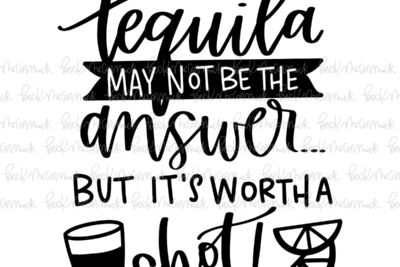 tequila
MAY NOT BE THE
answer...
BUT IT'S WORTH A
shot!